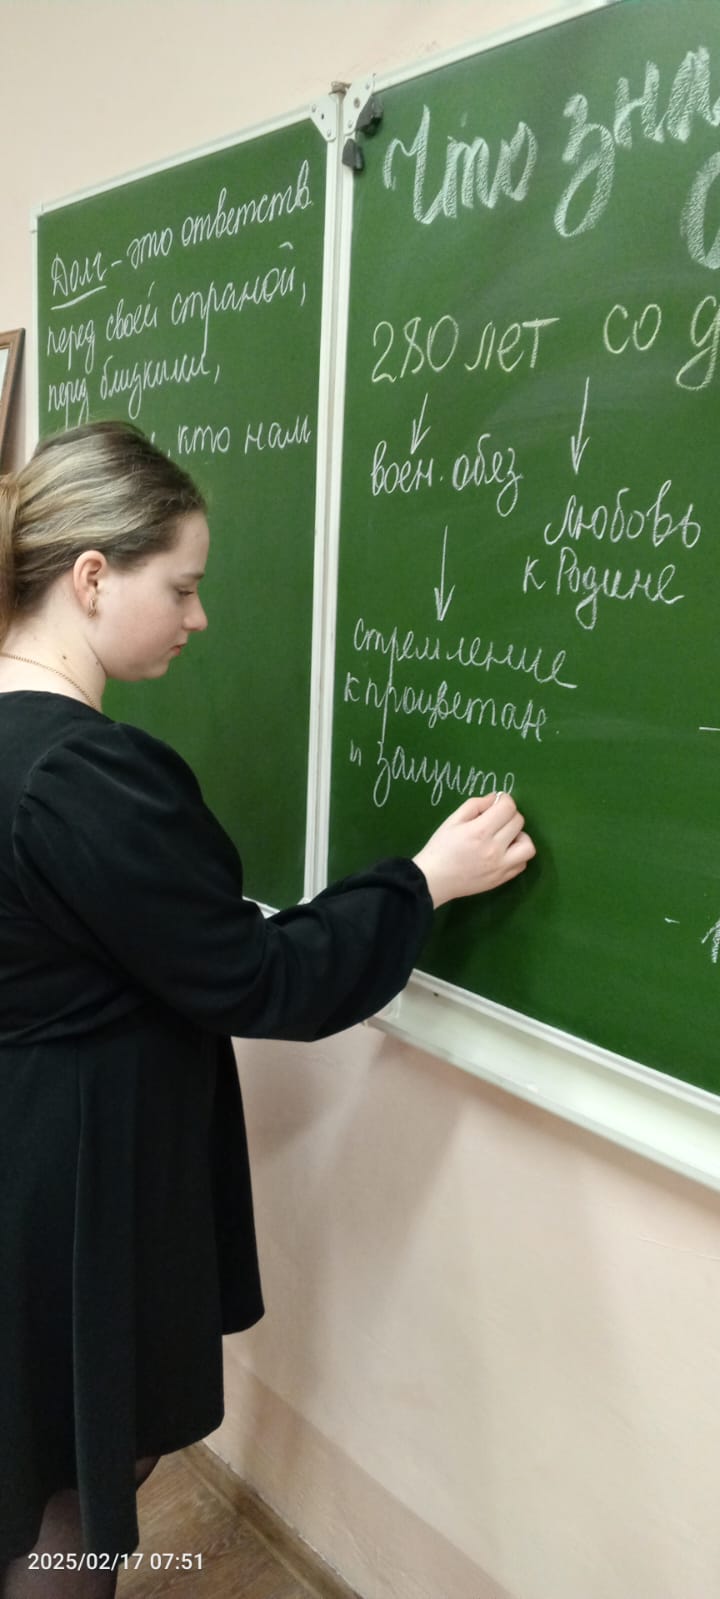 Долг - это ответств.
перед своей страной,
перед близкими,
, кто нам
Что зна
280 лет со д
воен. обяз
любовь
к Родине
стремление
к процветан.
и защите
2025/02/17 07:51